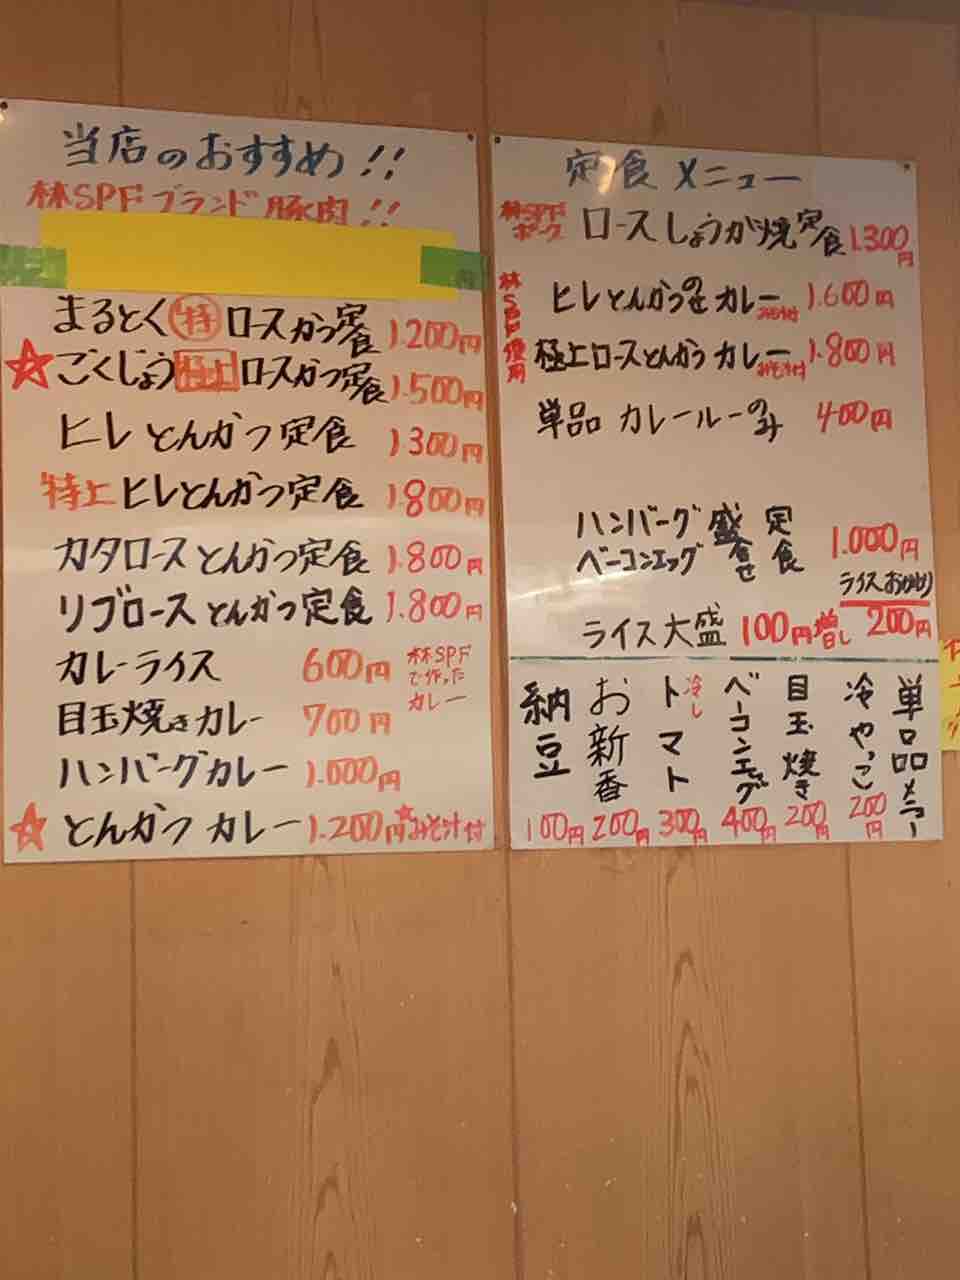 当店のおすすめ!!
林SPFブランド豚肉!!
円
まるとく特ロースかつ定食 1.200円
☆ごくじょう極上ロースかつ定食 1.500円
ヒレとんかつ定食 1300円
特上ヒレとんかつ定食 1.800円
カタロースとんかつ定食 1.800円
リブロースとんかつ定食 1.800円
カレーライス 600円
林SPF
で作った
カレー
目玉焼きカレー 700円
ハンバーグカレー 1.000円
☆とんかつカレー 1.200円 ☆みそ汁付
定食メニュー
林SPF
ポーク
ロースしょうが焼定食 1.300円
林SPF使用
ヒレとんかつのせカレー みそ汁付 1.600円
極上ロースとんかつカレー みそ汁付 1.800円
単品 カレールーのみ 400円
ハンバーグ
ベーコンエッグ
盛合せ定食 1.000円
ライスおかわり
200円
ライス大盛 100円増し
単品メニュー
冷やっこ 200円
目玉焼き 200円
ベーコンエッグ 400円
冷しトマト 300円
お新香 200円
納豆 100円